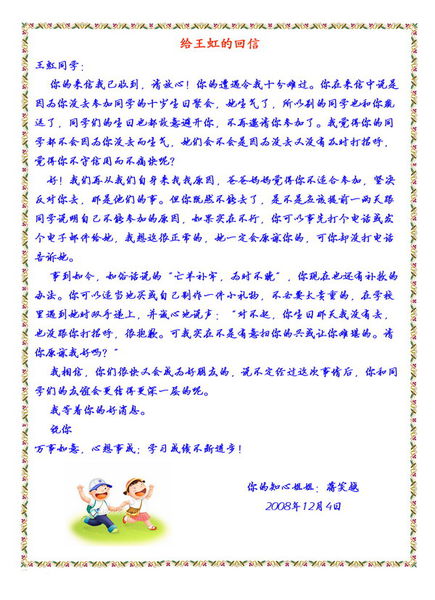 给王虹的回信
王虹同学：
你的来信我已收到，请放心！你的遭遇令我十分难过。你在来信中说是
因为你没去参加同学的十岁生日聚会，她生气了，所以别的同学也和你疏
远了，同学们的生日也都故意避开你，不再邀请你参加了。我觉得你的同
学都不会因为你没去而生气，她们会不会是因为没去又没有及时打招呼，
觉得你不守信用而不痛快呢？
好！我们再从我们自身来找找原因，爸爸妈妈觉得你不适合参加，坚决
反对你去，那是他们的事。但你既然不能去了，是不是应该提前一两天跟
同学说明自己不能参加的原因，如果实在不行，你可以事先打个电话或发
个电子邮件给她，我想这很正常的，她一定会原谅你的，可你却没打电话
告诉她。
事到如今，如俗话说的“亡羊补牢，为时不晚”，你现在也还有补救的
办法。你可以适当地买或自己制作一件小礼物，不必要太贵重的，在学校
里遇到她时双手递上，并诚心地说声：“对不起，你生日那天我没有去，
也没跟你打招呼，很抱歉。可我实在不是有意扫你的兴或让你难堪的。请
你原谅我好吗？”
我相信，你们很快又会成为好朋友的，说不定经过这次事情后，你和同
学们的友谊会更值得更深一层的呢。
我等着你的好消息。
祝你
万事如意，心想事成；学习成绩不断进步！
你的知心姐姐：蒋笑越
2008年12月4日